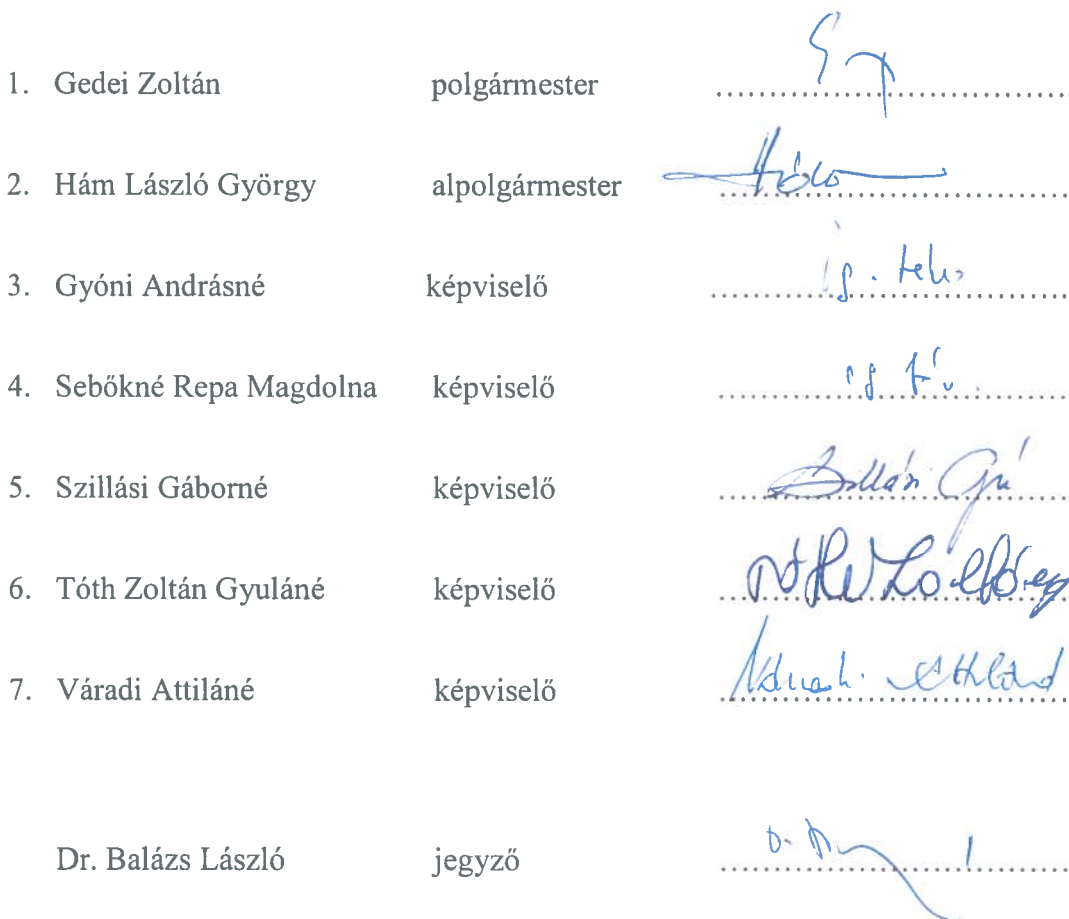 1. Gedei Zoltán polgármester
2. Hám László György alpolgármester
3. Gyóni Andrásné képviselő
4. Sebőkné Repa Magdolna képviselő
5. Szillási Gáborné képviselő Szillási Gné
6. Tóth Zoltán Gyuláné képviselő
7. Váradi Attiláné képviselő Váradi Attiláné
Dr. Balázs László jegyző